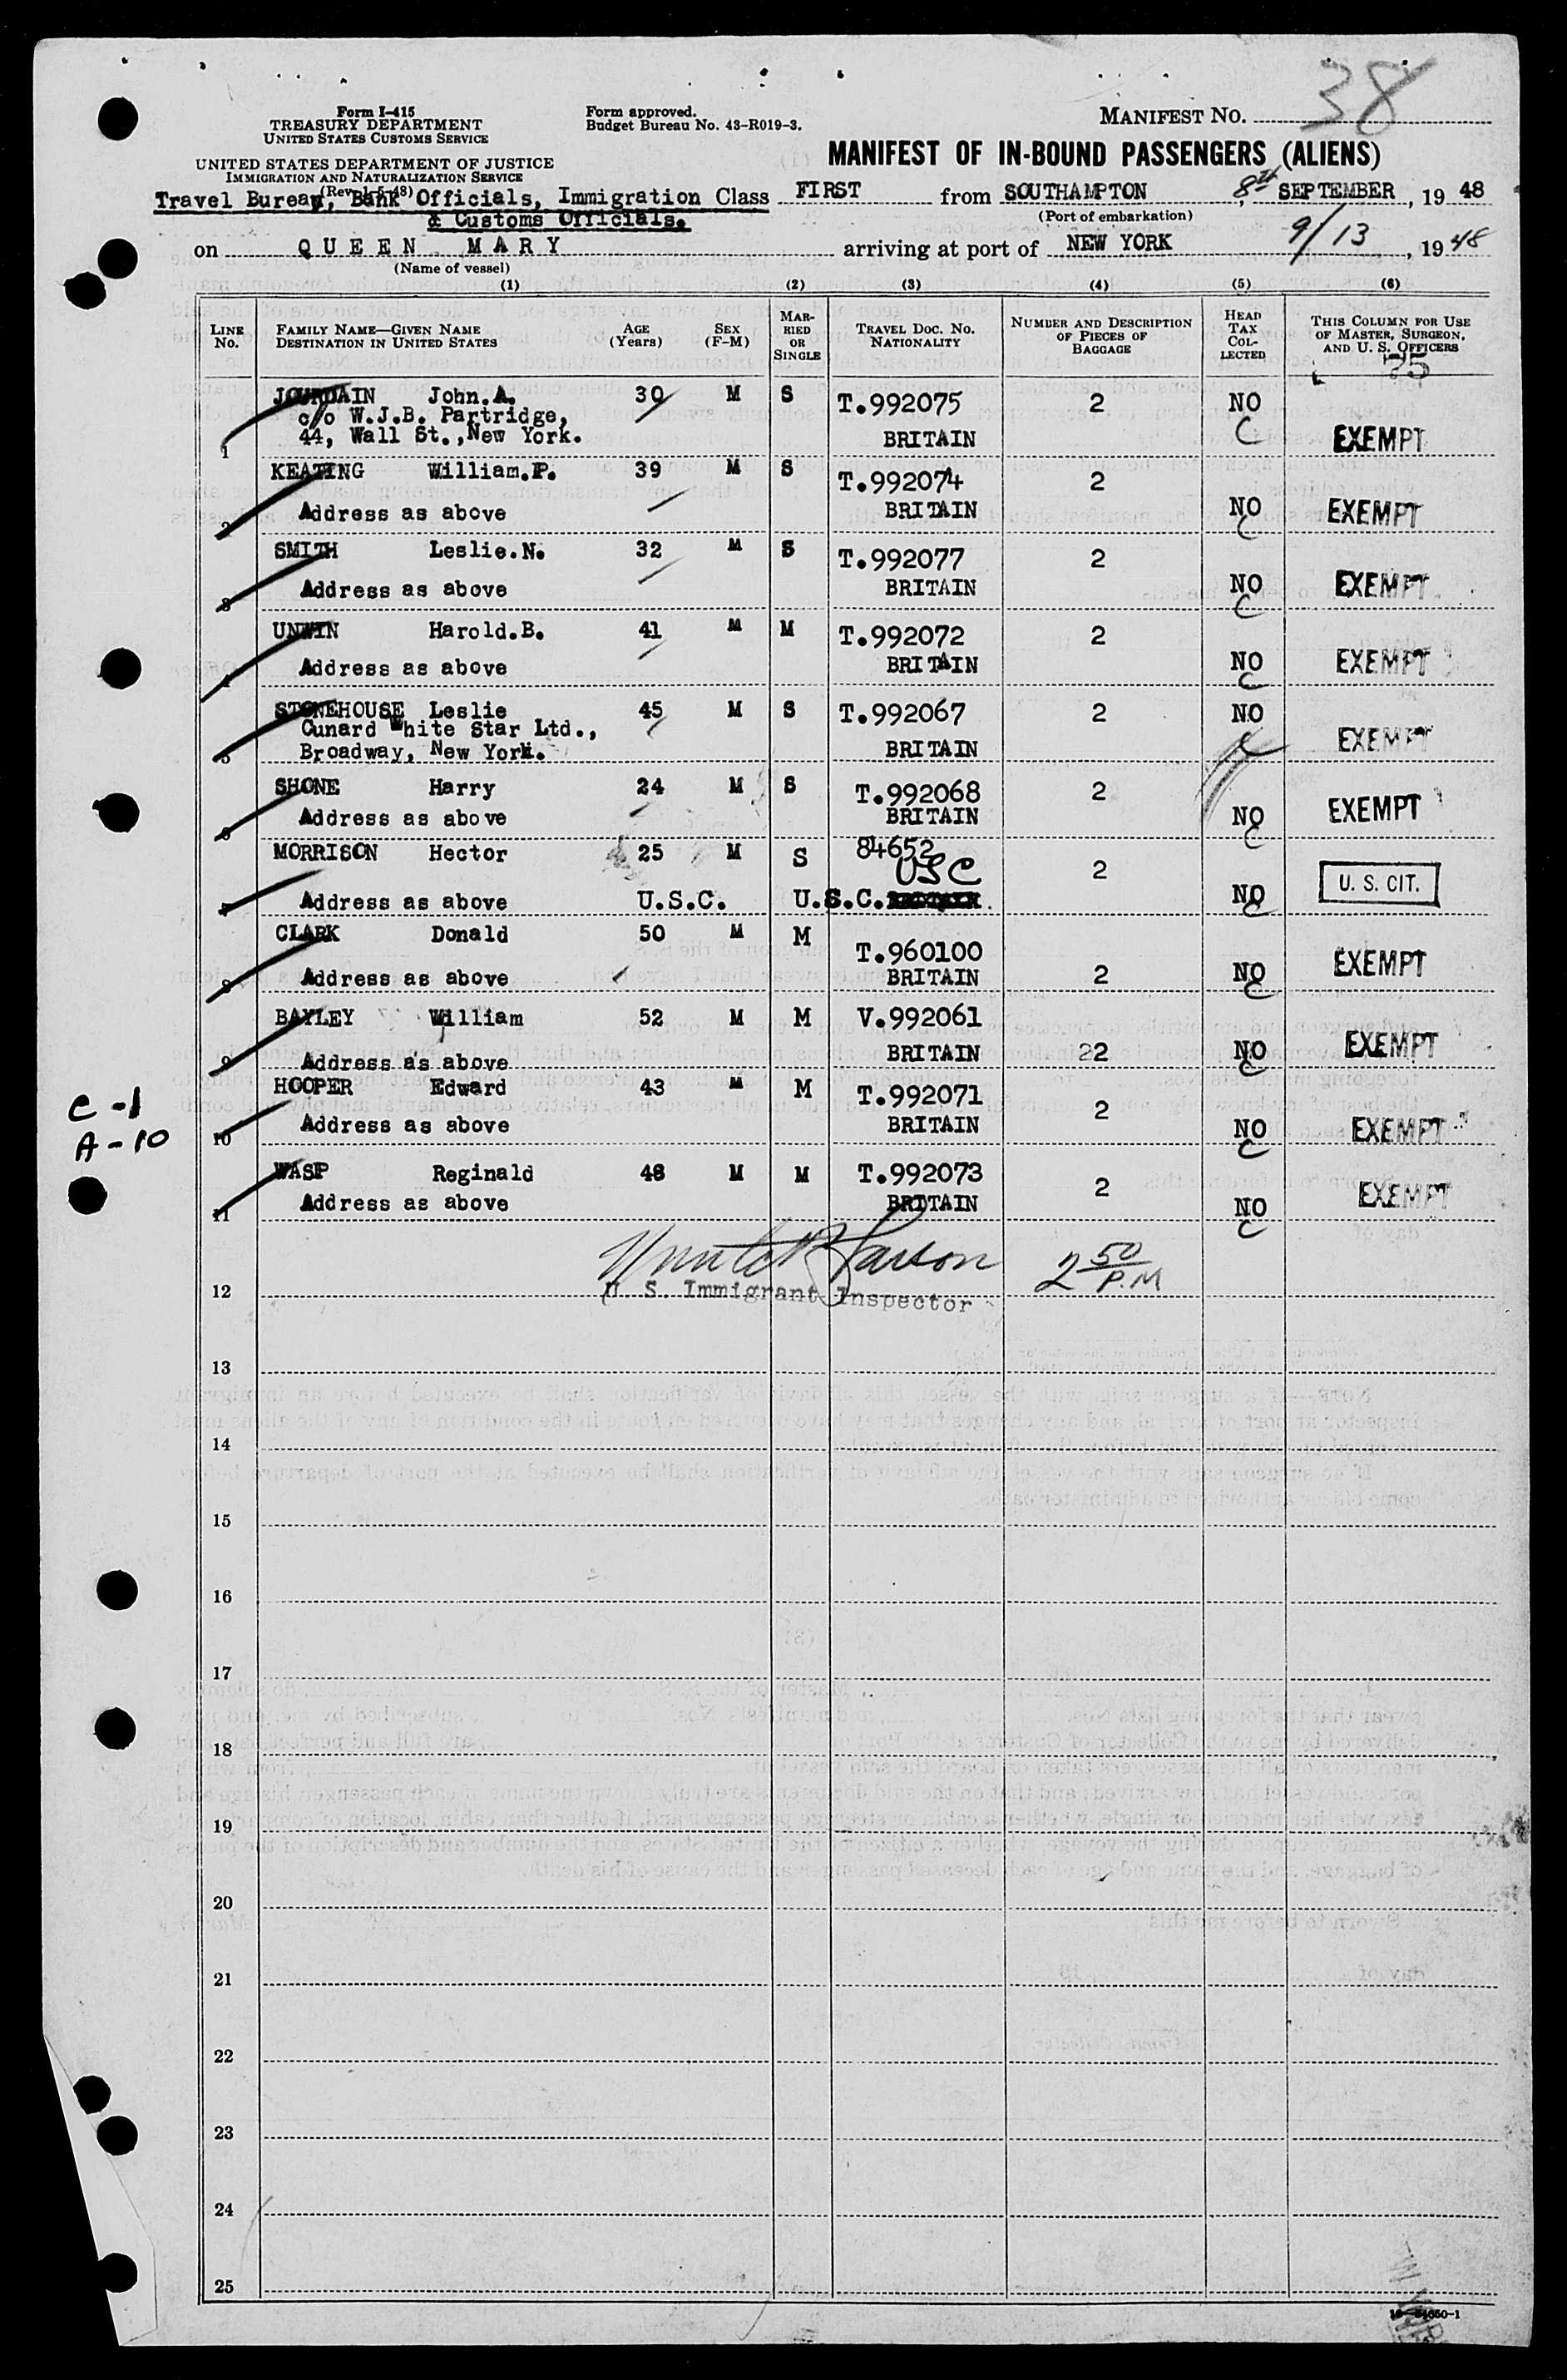 38
Form I-415
TREASURY DEPARTMENT
UNITED STATES CUSTOMS SERVICE
Form approved.
Budget Bureau No. 43-R019-3.
MANIFEST NO.
UNITED STATES DEPARTMENT OF JUSTICE
IMMIGRATION AND NATURALIZATION SERVICE
(Rev. 1-5-48)
MANIFEST OF IN-BOUND PASSENGERS (ALIENS)
Travel Bureau, Bank Officials, Immigration Class FIRST from SOUTHAMPTON 8th SEPTEMBER, 19 48
& Customs Officials.
(Port of embarkation)
on QUEEN MARY arriving at port of NEW YORK 9/13, 19 48
(Name of vessel)
(1) (2) (3) (4) (5) (6)
LINE NO. FAMILY NAME—GIVEN NAME DESTINATION IN UNITED STATES AGE (Years) SEX (F-M) MARRIED OR SINGLE TRAVEL DOC. NO. NATIONALITY NUMBER AND DESCRIPTION OF PIECES OF BAGGAGE HEAD TAX COLLECTED THIS COLUMN FOR USE OF MASTER, SURGEON, AND U. S. OFFICERS
75
JOURDAIN John.A. 30 M S T.992075 2 NO
c/o W.J.B. Partridge,
1 44, Wall St.,New York. BRITAIN C EXEMPT
KEATING William.P. 39 M S T.992074 2
2 Address as above BRITAIN NO C EXEMPT
SMITH Leslie.N. 32 M S T.992077 2
3 Address as above BRITAIN NO C EXEMPT
UNWIN Harold.B. 41 M M T.992072 2
4 Address as above BRITAIN NO C EXEMPT
STONEHOUSE Leslie 45 M S T.992067 2 NO
Cunard White Star Ltd.,
5 Broadway, New York. BRITAIN C EXEMPT
SHONE Harry 24 M S T.992068 2
6 Address as above BRITAIN NO C EXEMPT
MORRISON Hector 25 M S 84652 2
USC
7 Address as above U.S.C. U.S.C. NO C U. S. CIT.
CLARK Donald 50 M M T.960100
8 Address as above BRITAIN 2 NO C EXEMPT
BAYLEY William 52 M M V.992061
9 Address as above BRITAIN 22 NO C EXEMPT
HOOPER Edward 43 M M T.992071 2
C-1
A-10
10 Address as above BRITAIN NO C EXEMPT
WASP Reginald 48 M M T.992073 2
11 Address as above BRITAIN NO C EXEMPT
2 50 P.M
12 U. S. Immigrant Inspector
13
14
15
16
17
18
19
20
21
22
23
24
25